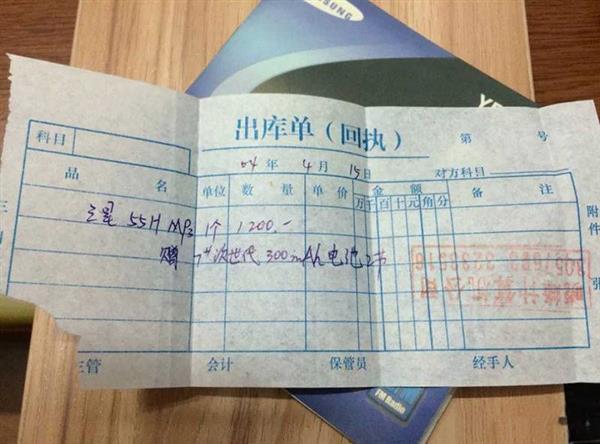 SAMSUNG
出库单（回执）
科目
第 号
04 年 4 月 15 日
对方科目
品 名 单位 数 量 单 价 金 额 备 注
万 千 百 十 元 角 分
附件
张
三星 55H MP3 1个 1200.-
赠 次世代 300mAh 电池 2节
主管 会计 保管员 经手人
FM Radio